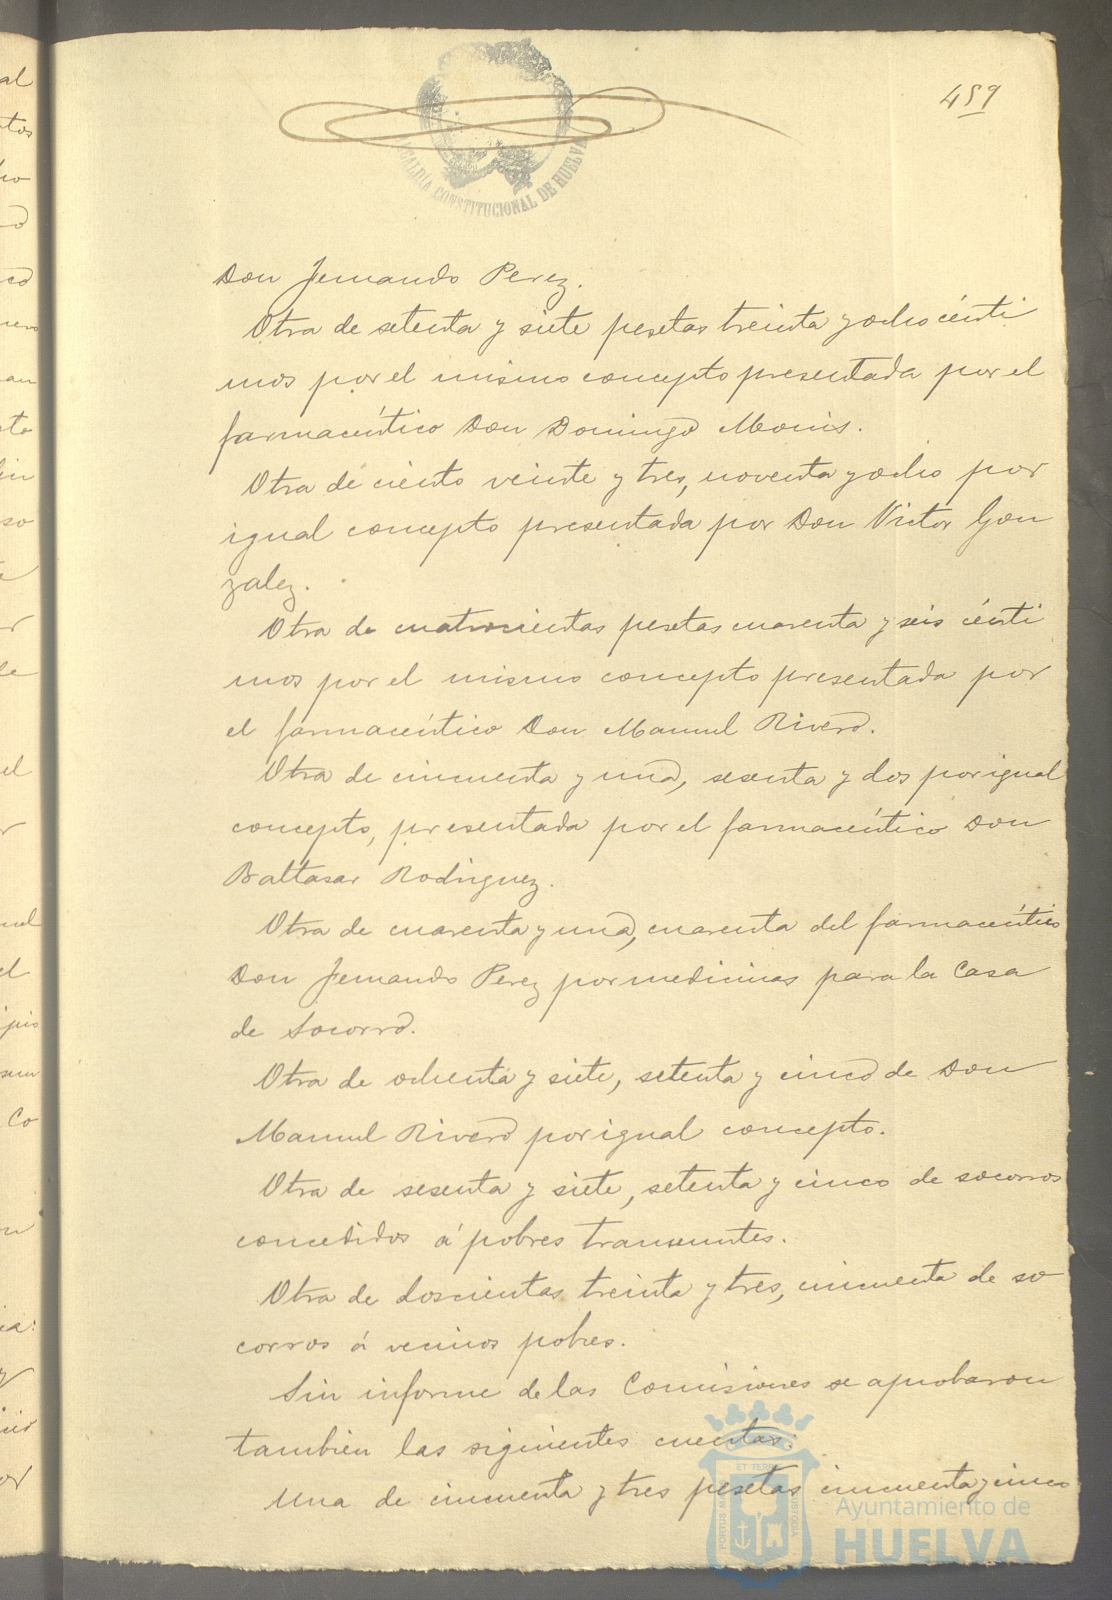 459
ALCALDIA CONSTITUCIONAL DE HUELVA
Don Fernando Perez.
Otra de setenta y siete pesetas treinta y ocho cénti
mos por el mismo concepto presentada por el
farmacéutico Don Domingo
Otra de ciento veinte y tres, noventa y ocho por
igual concepto presentada por Don Victor Gon
zalez.
Otra de cuatrocientas pesetas cuarenta y seis cénti
mos por el mismo concepto presentada por
el farmacéutico Don Manuel Rivero.
Otra de cincuenta y una, sesenta y dos por igual
concepto, presentada por el farmacéutico Don
Baltasar Rodriguez.
Otra de cuarenta y una, cuarenta del farmacéutico
Don Fernando Perez por medicinas para la Casa
de Socorro.
Otra de ochenta y siete, setenta y cinco de Don
Manuel Rivero por igual concepto.
Otra de sesenta y siete, setenta y cinco de socorros
concedidos á pobres transeuntes.
Otra de doscientas treinta y tres, cincuenta de so
corros á vecinos pobres.
Sin informe de las Comisiones se aprobaron
tambien las siguientes cuentas:
Una de cincuenta y tres pesetas cincuenta y cinco
Ayuntamiento de
HUELVA